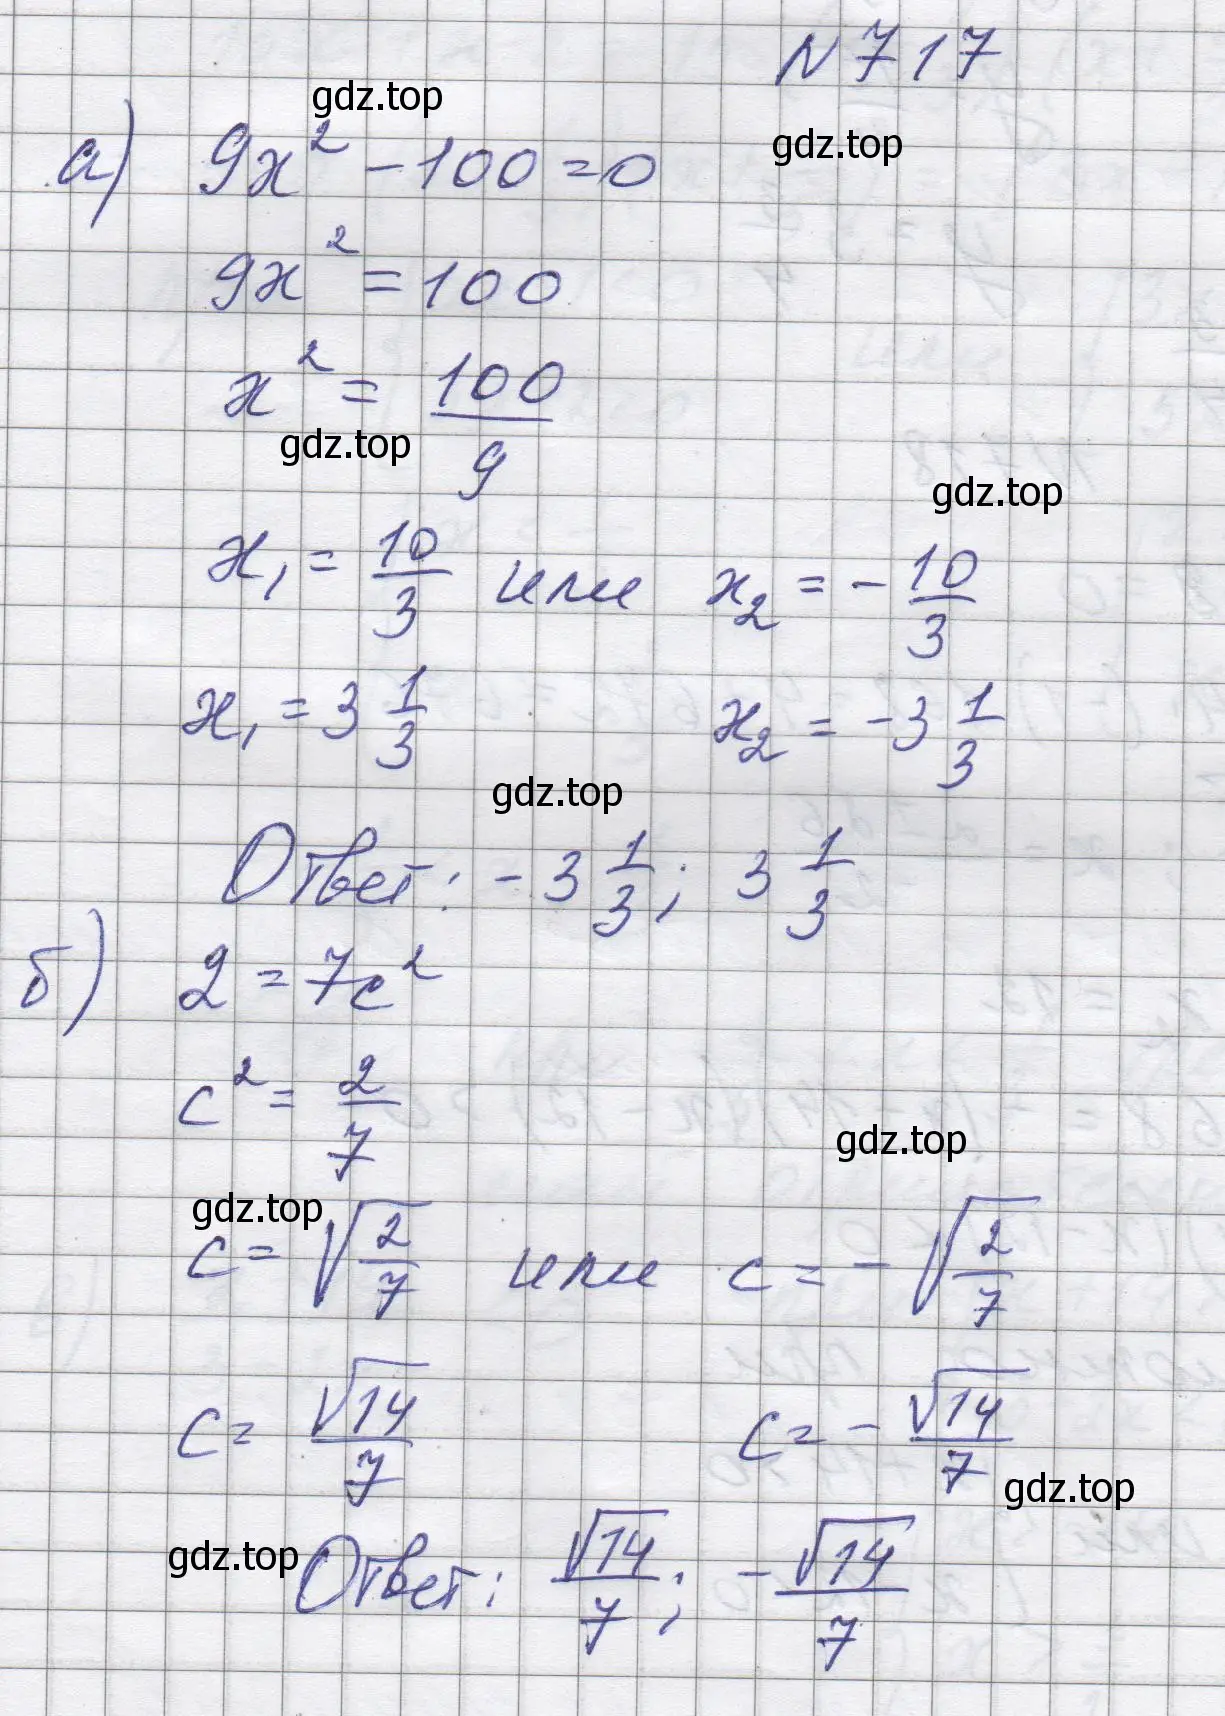 N 717
gdz.top
а) 9x² - 100 = 0
gdz.top
9x² = 100
x² = 100/9
gdz.top
gdz.top
x₁ = 10/3 или x₂ = - 10/3
x₁ = 3 1/3 x₂ = - 3 1/3
gdz.top
Ответ: - 3 1/3; 3 1/3
б) 2 = 7c²
c² = 2/7
gdz.top
gdz.top
c = √(2/7) или c = - √(2/7)
c = √14/7 c = - √14/7
gdz.top
gdz.top
Ответ: √14/7; - √14/7